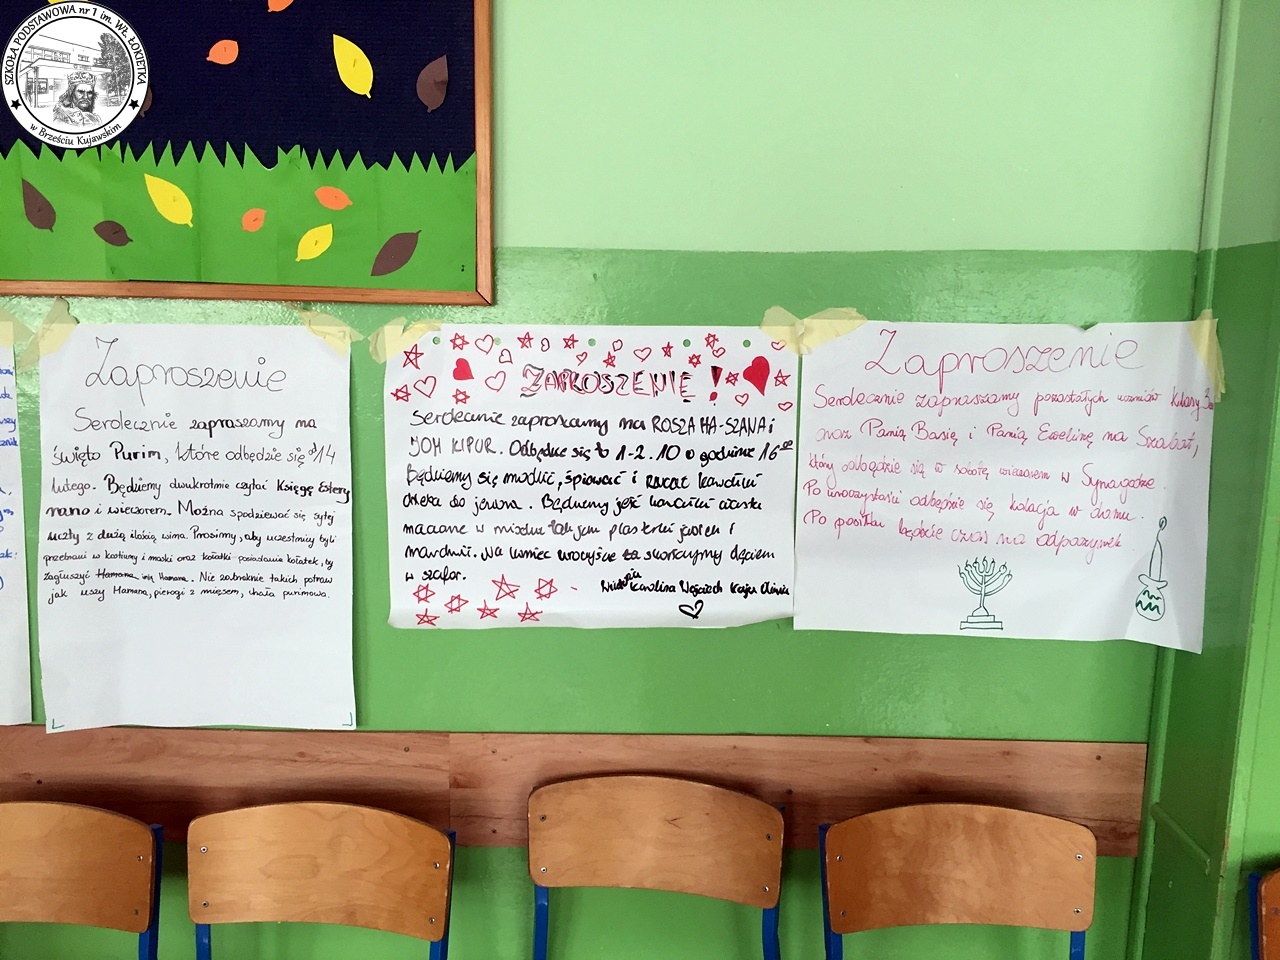 SZKOŁA PODSTAWOWA nr 1 im. WŁ. ŁOKIETKA
w Brześciu Kujawskim
Zaproszenie
Serdecznie zapraszamy na
święto Purim, które odbędzie się 14
lutego. Będziemy dwukrotnie czytać Księgę Estery
rano i wieczorem. Można spodziewać się sytej
uczty z dużą ilością wina. Prosimy, aby uczestnicy byli
przebrani w kostiumy i maski oraz kołatki posiadania kołatek, by
zagłuszyć Hamana imię Hamana. Nie zabraknie takich potraw
jak uszy Hamana, pierogi z mięsem, chała purimowa.
ZAPROSZENIE!
Serdecznie zapraszamy na ROSZ HA-SZANA i
JOM KIPUR. Odbędzie się to 1-2.10 o godzinie 16⁰⁰
Będziemy się modlić, śpiewać i rzucać kawałki
chleba do jeziora. Będziemy jeść kawałki ciasta
maczane w miodzie także plasterki jabłek i
marchwii. Na koniec uroczyście to skończymy dęciem
w szofar.
Karolina Wojciech Kaja Oliwia
Zaproszenie
Serdecznie zapraszamy pozostałych uczniów klasy
oraz Panią Basię i Panią Ewelinę na Szabat,
który odbędzie się w sobotę wieczorem w Synagodze.
Po uroczystości odbędzie się kolacja w domu.
Po posiłku będzie czas na odpoczynek.